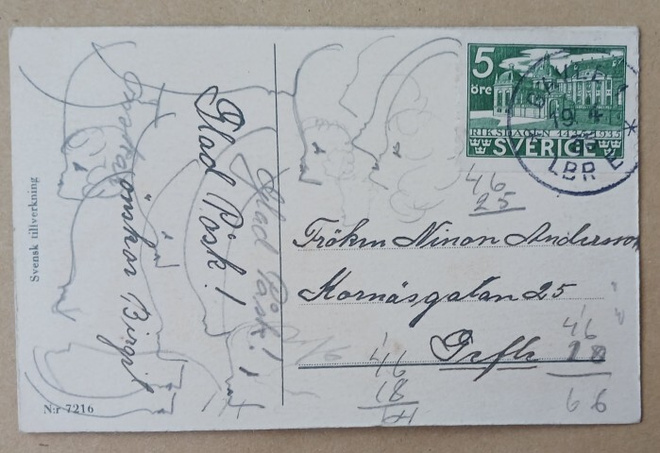 Svensk tillverkning
N:r 7216
Glad Påsk!
önskar Birgit
Glad Påsk!
5
öre
RIKSDAGEN 1435-1935
SVERIGE
GÄVLE 1
19 4
LBR E
46
25
Fröken Ninon Andersson
Kornäsgatan 25
Gefle
46
18
46
18
66